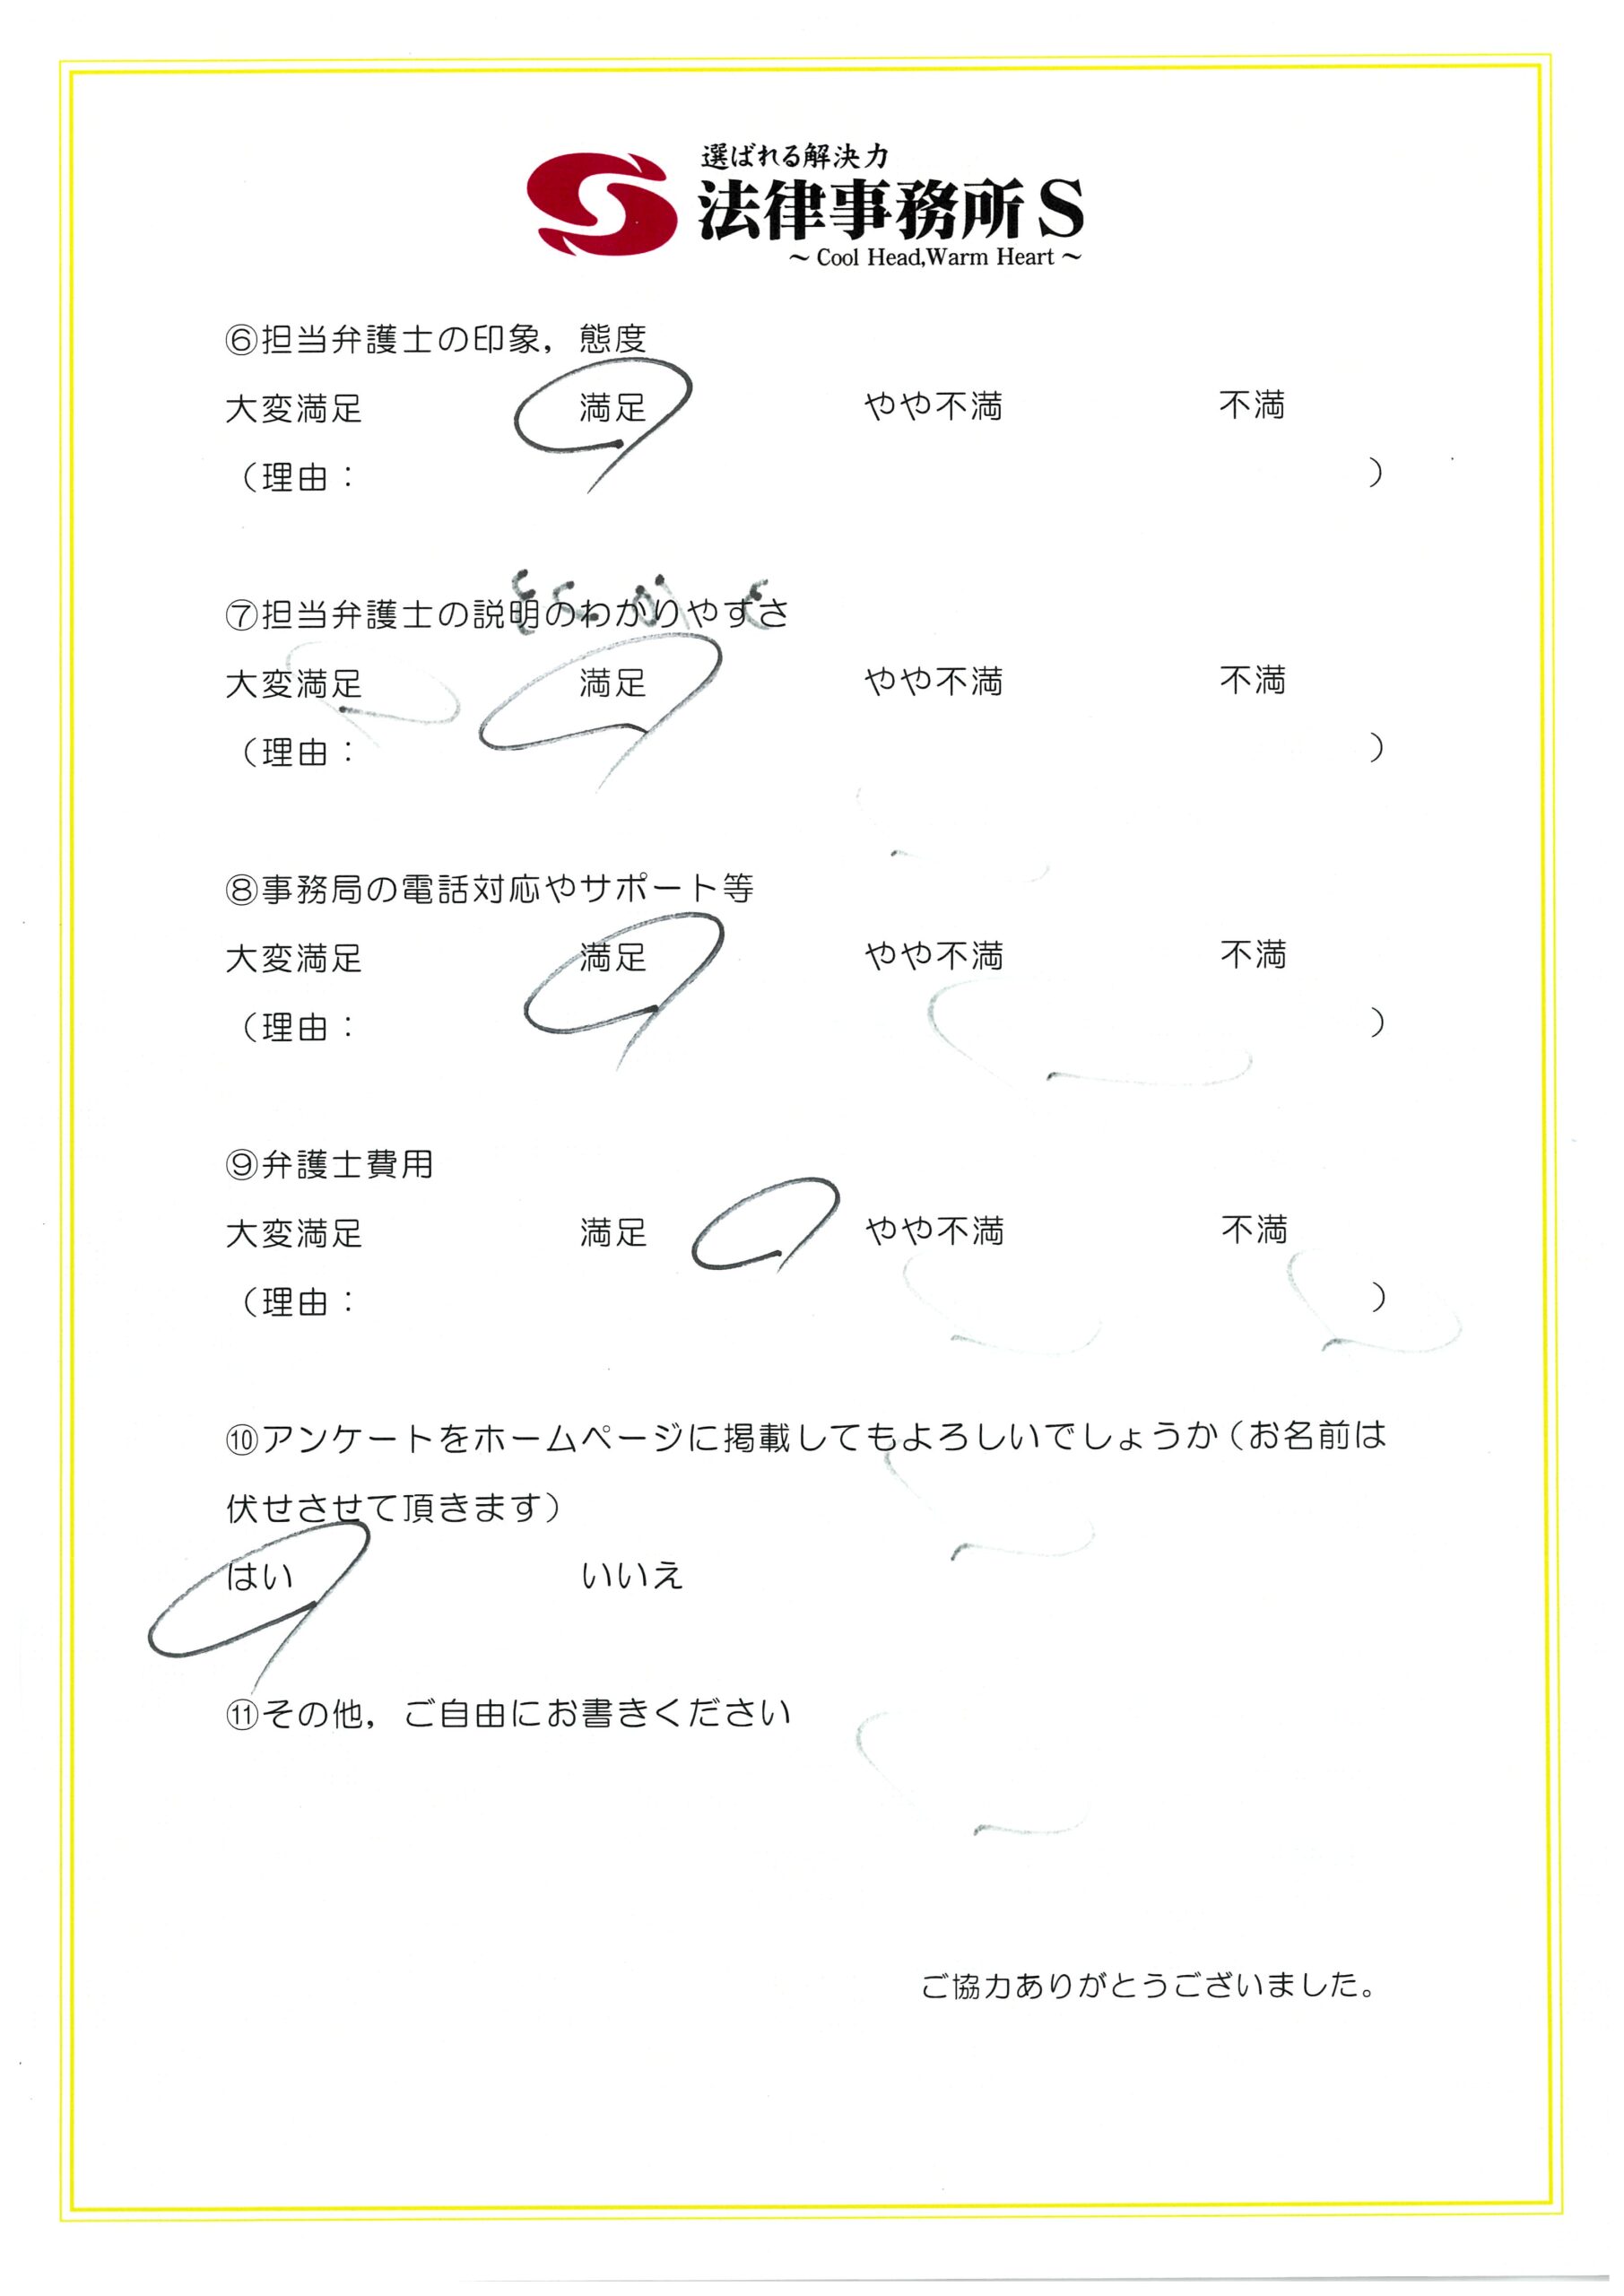 選ばれる解決力
法律事務所S
～Cool Head,Warm Heart～
⑥担当弁護士の印象，態度
大変満足 満足 やや不満 不満
（理由： ）
⑦担当弁護士の説明のわかりやすさ
大変満足 満足 やや不満 不満
（理由： ）
⑧事務局の電話対応やサポート等
大変満足 満足 やや不満 不満
（理由： ）
⑨弁護士費用
大変満足 満足 やや不満 不満
（理由： ）
⑩アンケートをホームページに掲載してもよろしいでしょうか（お名前は
伏せさせて頂きます）
はい いいえ
⑪その他，ご自由にお書きください
ご協力ありがとうございました。